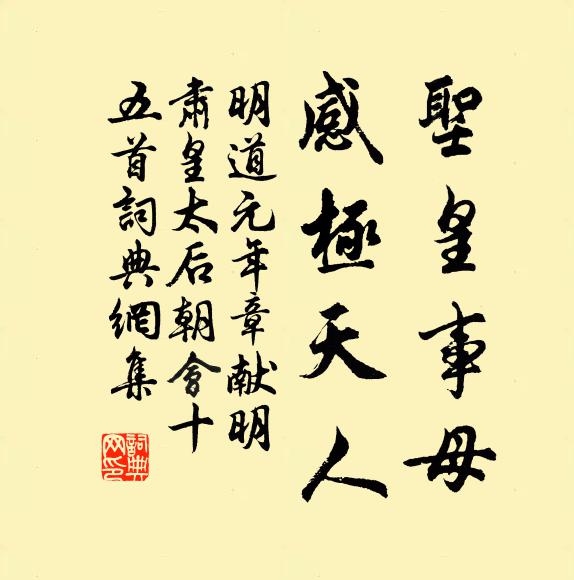 聖皇事母
感極天人
明道元年章献明
肅皇太后朝會十
五首詞典網集
詞典網印